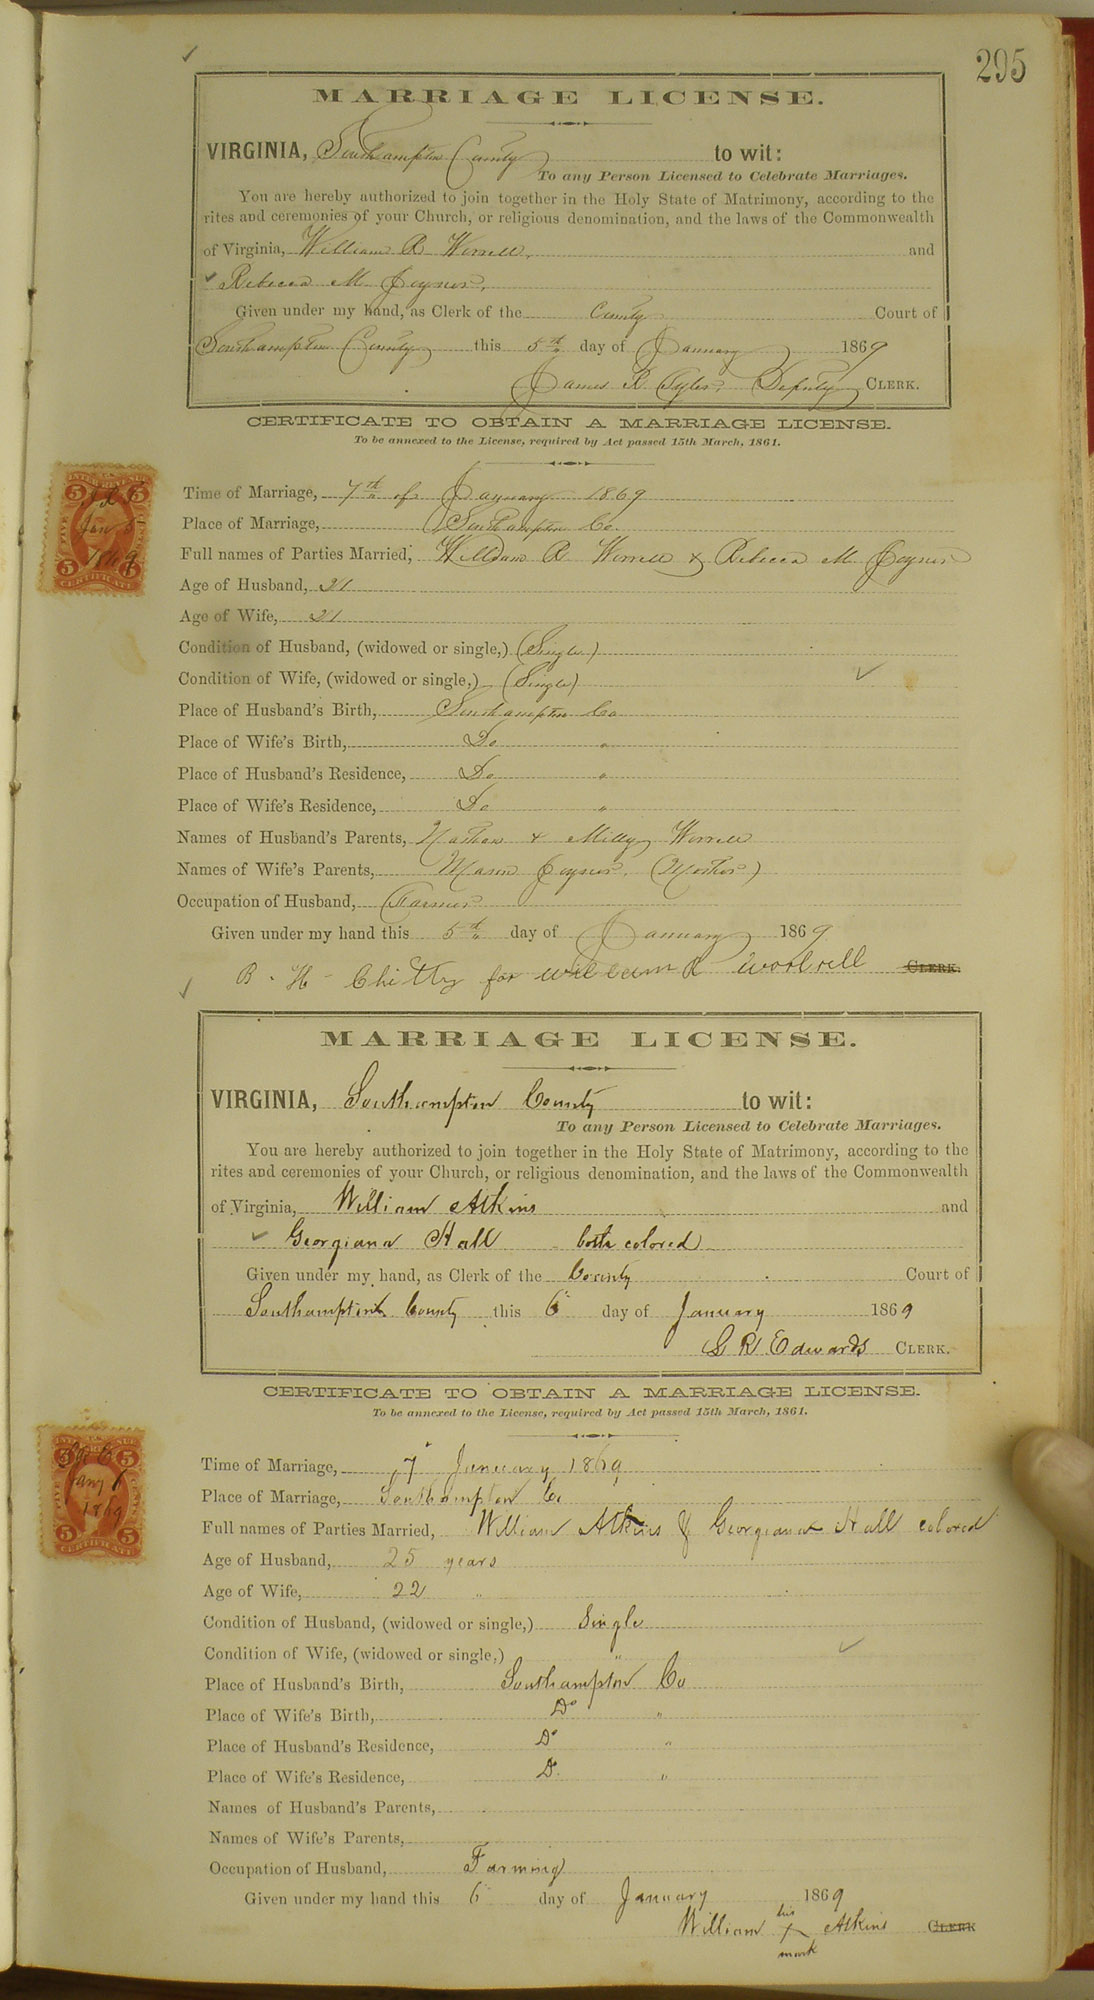 295
MARRIAGE LICENSE.
VIRGINIA, Southampton County to wit:
To any Person Licensed to Celebrate Marriages.
You are hereby authorized to join together in the Holy State of Matrimony, according to the
rites and ceremonies of your Church, or religious denomination, and the laws of the Commonwealth
of Virginia, William R Worrell, and
Rebecca M Joyner,
Given under my hand, as Clerk of the County Court of
Southampton County this 5th day of January 1869
James R Tyler, Deputy CLERK.
CERTIFICATE TO OBTAIN A MARRIAGE LICENSE.
To be annexed to the License, required by Act passed 15th March, 1861.
INTER. REVENUE
5 5
Jan 5
1869
FIVE CENTS
5 5
CERTIFICATE
Time of Marriage, 7th of January 1869
Place of Marriage, Southampton Co.
Full names of Parties Married, William R Worrell & Rebecca M Joyner
Age of Husband, 21
Age of Wife, 21
Condition of Husband, (widowed or single,) (Single)
Condition of Wife, (widowed or single,) (Single)
Place of Husband's Birth, Southampton Co
Place of Wife's Birth, Do "
Place of Husband's Residence, Do "
Place of Wife's Residence, Do "
Names of Husband's Parents, Nathan & Milly Worrell
Names of Wife's Parents, Mason Joyner, (Mother)
Occupation of Husband, Farmer
Given under my hand this 5th day of January 1869
B. H. Chitty for William R Worlrell CLERK.
MARRIAGE LICENSE.
VIRGINIA, Southampton County to wit:
To any Person Licensed to Celebrate Marriages.
You are hereby authorized to join together in the Holy State of Matrimony, according to the
rites and ceremonies of your Church, or religious denomination, and the laws of the Commonwealth
of Virginia, William Atkins and
Georgiana Hall both colored
Given under my hand, as Clerk of the County Court of
Southampton County this 6 day of January 1869
L R Edwards CLERK.
CERTIFICATE TO OBTAIN A MARRIAGE LICENSE.
To be annexed to the License, required by Act passed 15th March, 1861.
5 5
Jany 6
1869
FIVE CENTS
5 5
CERTIFICATE
Time of Marriage, 7 January 1869
Place of Marriage, Southampton Co
Full names of Parties Married, William Atkins & Georgiana Hall colored
Age of Husband, 25 years
Age of Wife, 22 "
Condition of Husband, (widowed or single,) Single
Condition of Wife, (widowed or single,) "
Place of Husband's Birth, Southampton Co
Place of Wife's Birth, Do "
Place of Husband's Residence, Do "
Place of Wife's Residence, Do "
Names of Husband's Parents,
Names of Wife's Parents,
Occupation of Husband, Farming
Given under my hand this 6 day of January 1869
his
William X Atkins CLERK
mark